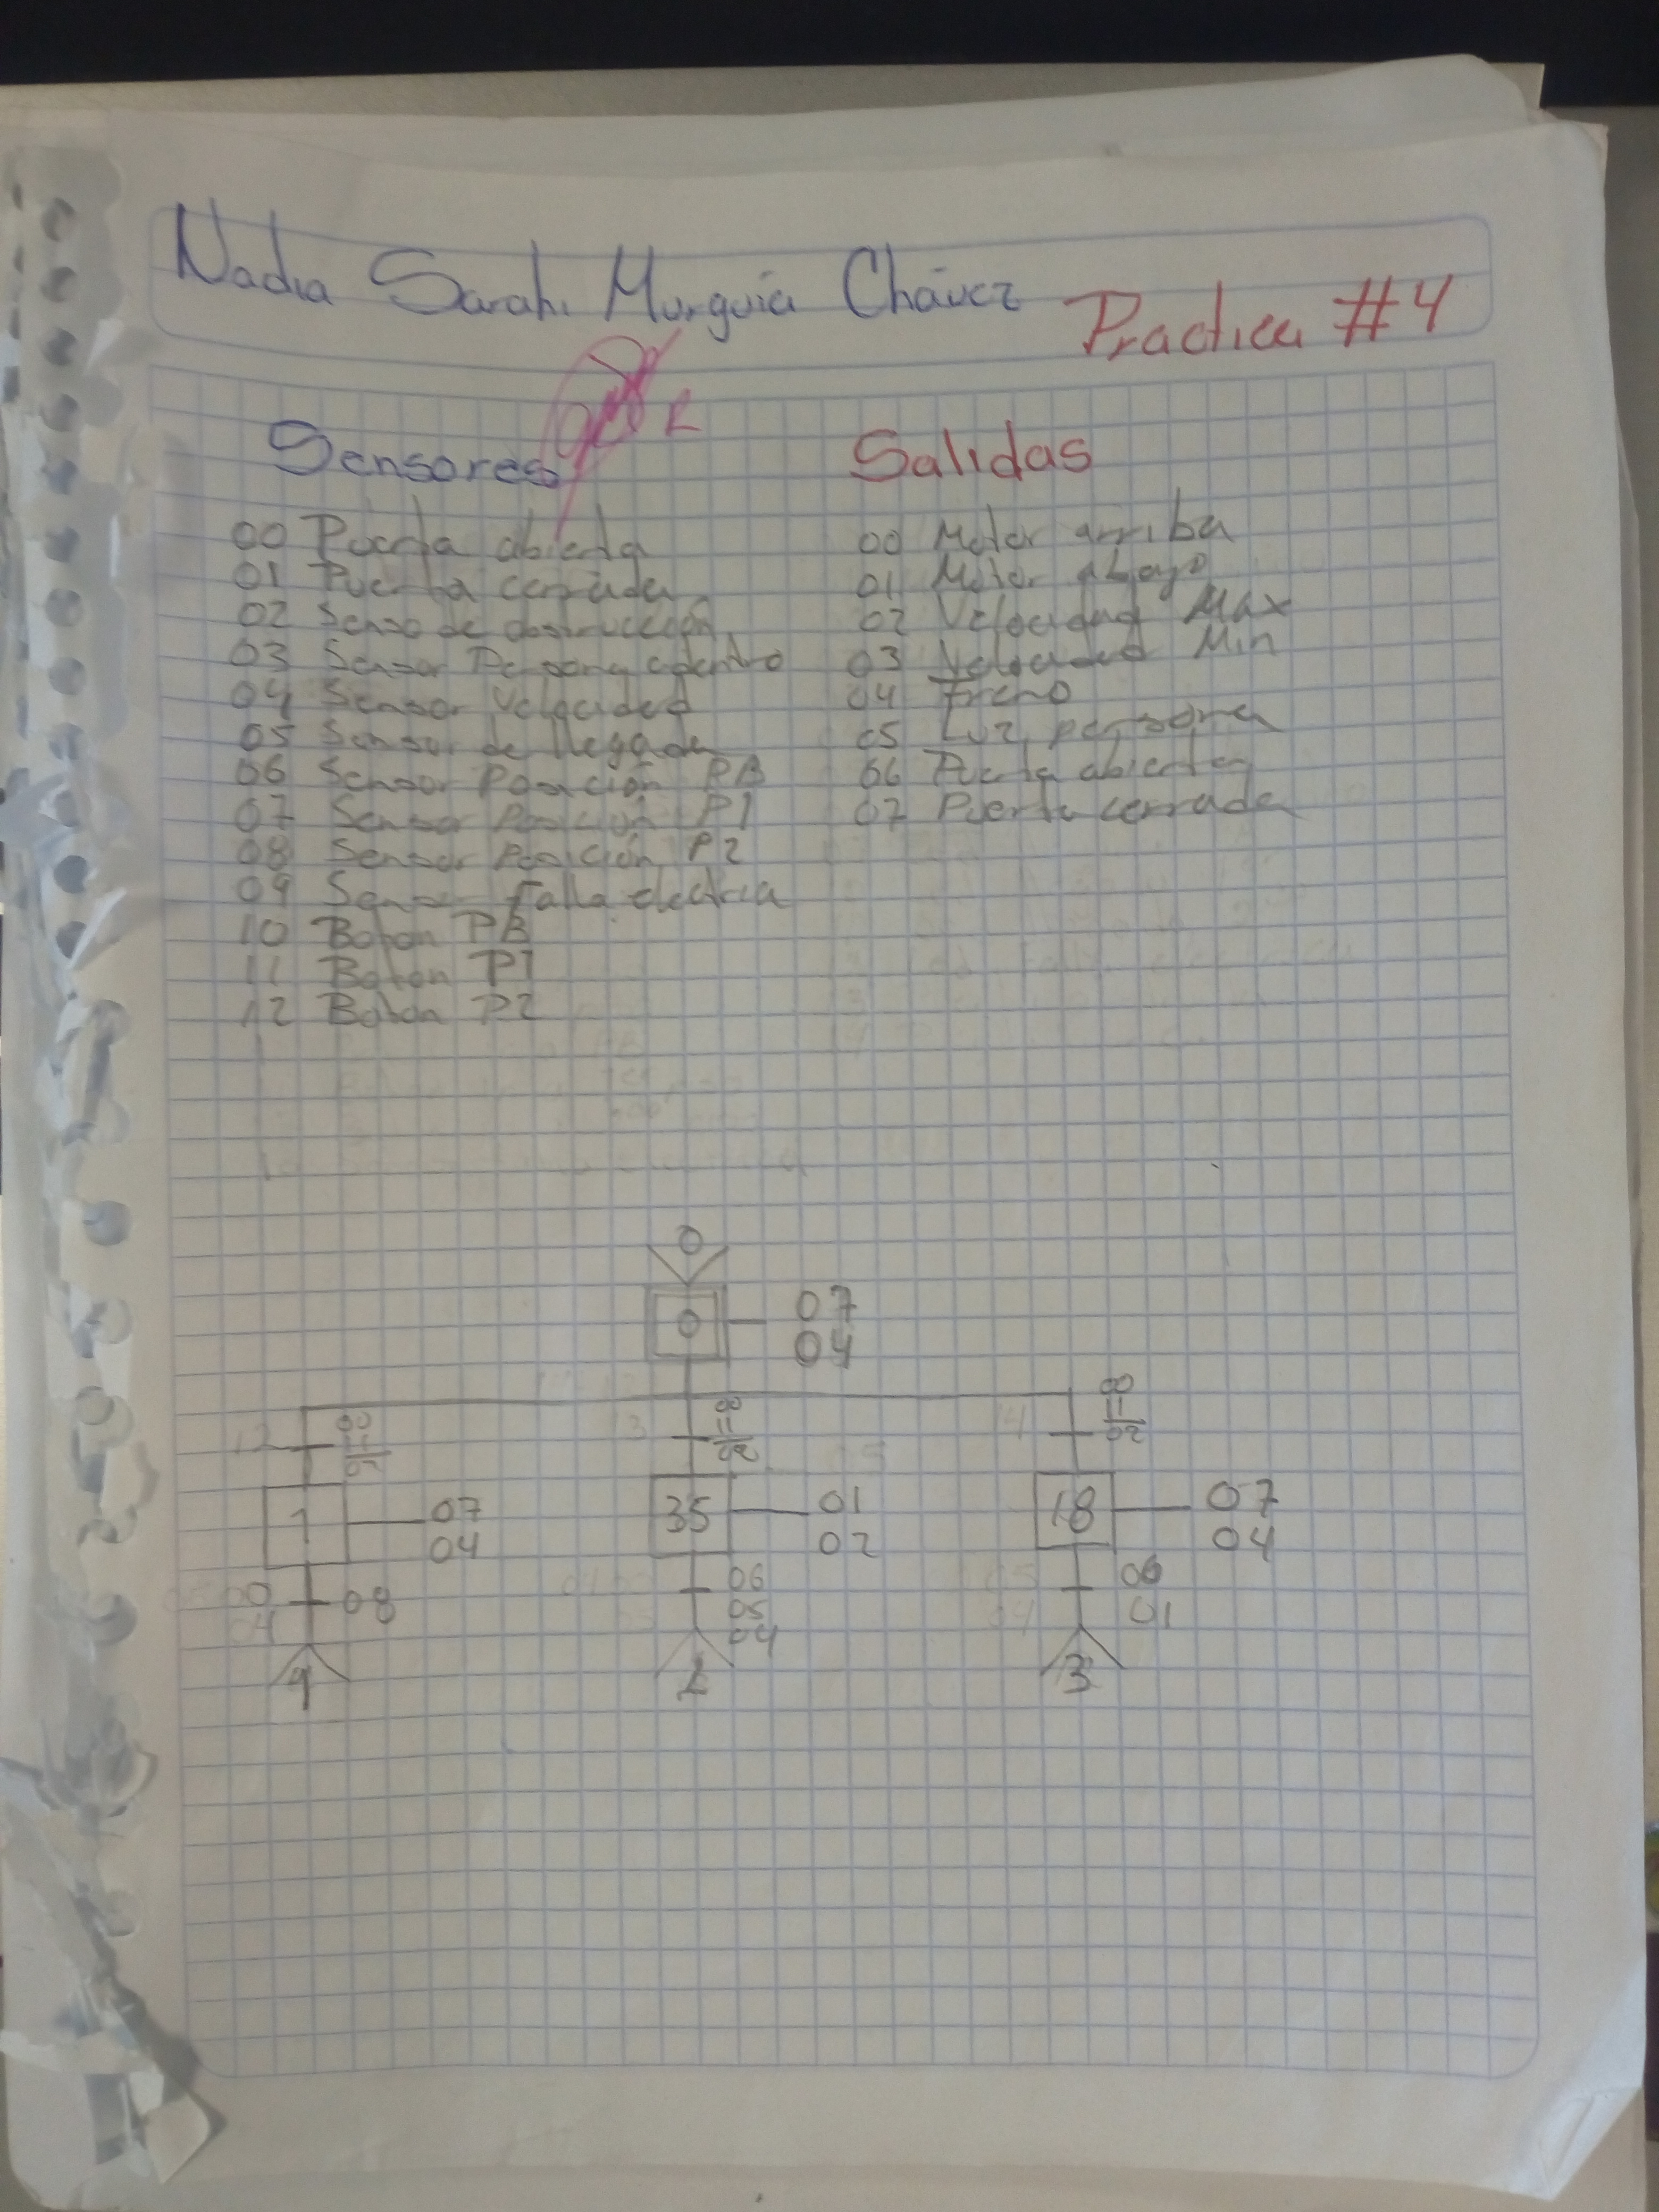 Nadia Sarahi Murguia Chávez
Practica #4
Sensores
00 Puerta abierta
01 Puerta cerrada
02 Senso de obstrucción
03 Sensor Persona adentro
04 Sensor Velocidad
05 Sensor de llegada
06 Sensor Posición PB
07 Sensor Posición P1
08 Sensor Posición P2
09 Sensor Falla electrica
10 Boton PB
11 Boton P1
12 Boton P2
Salidas
00 Motor arriba
01 Motor abajo
02 Velocidad Max
03 Velocidad Min
04 Freno
05 Luz persona
06 Puerta abierta
07 Puerta cerrada
0
0 07
04
12 13 14
1 07
04
35 01
02
18 07
04
00 08
04
06
05
04
06
01
1 2 3